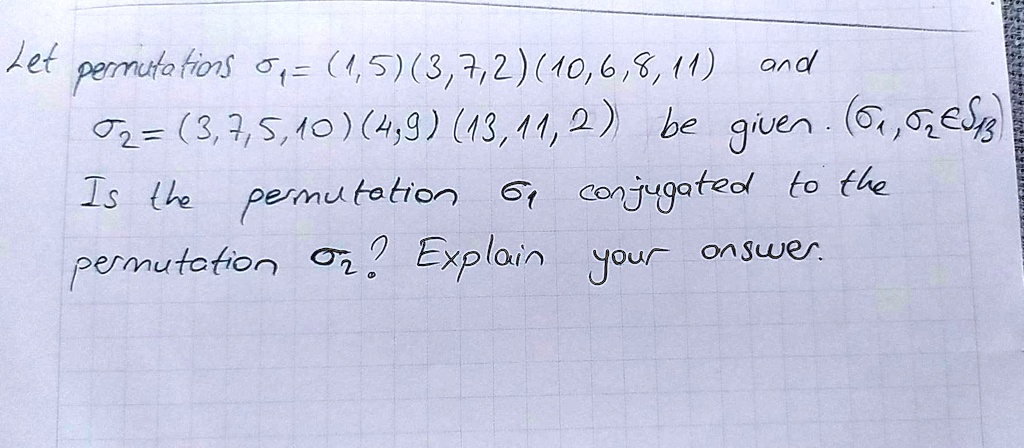 Let permutations σ₁ = (1,5)(3,7,2)(10,6,8,11) and
σ₂ = (3,7,5,10)(4,9)(13,11,2) be given. (σ₁,σ₂∈S₁₃)
Is the permutation σ₁ conjugated to the
permutation σ₂? Explain your answer.